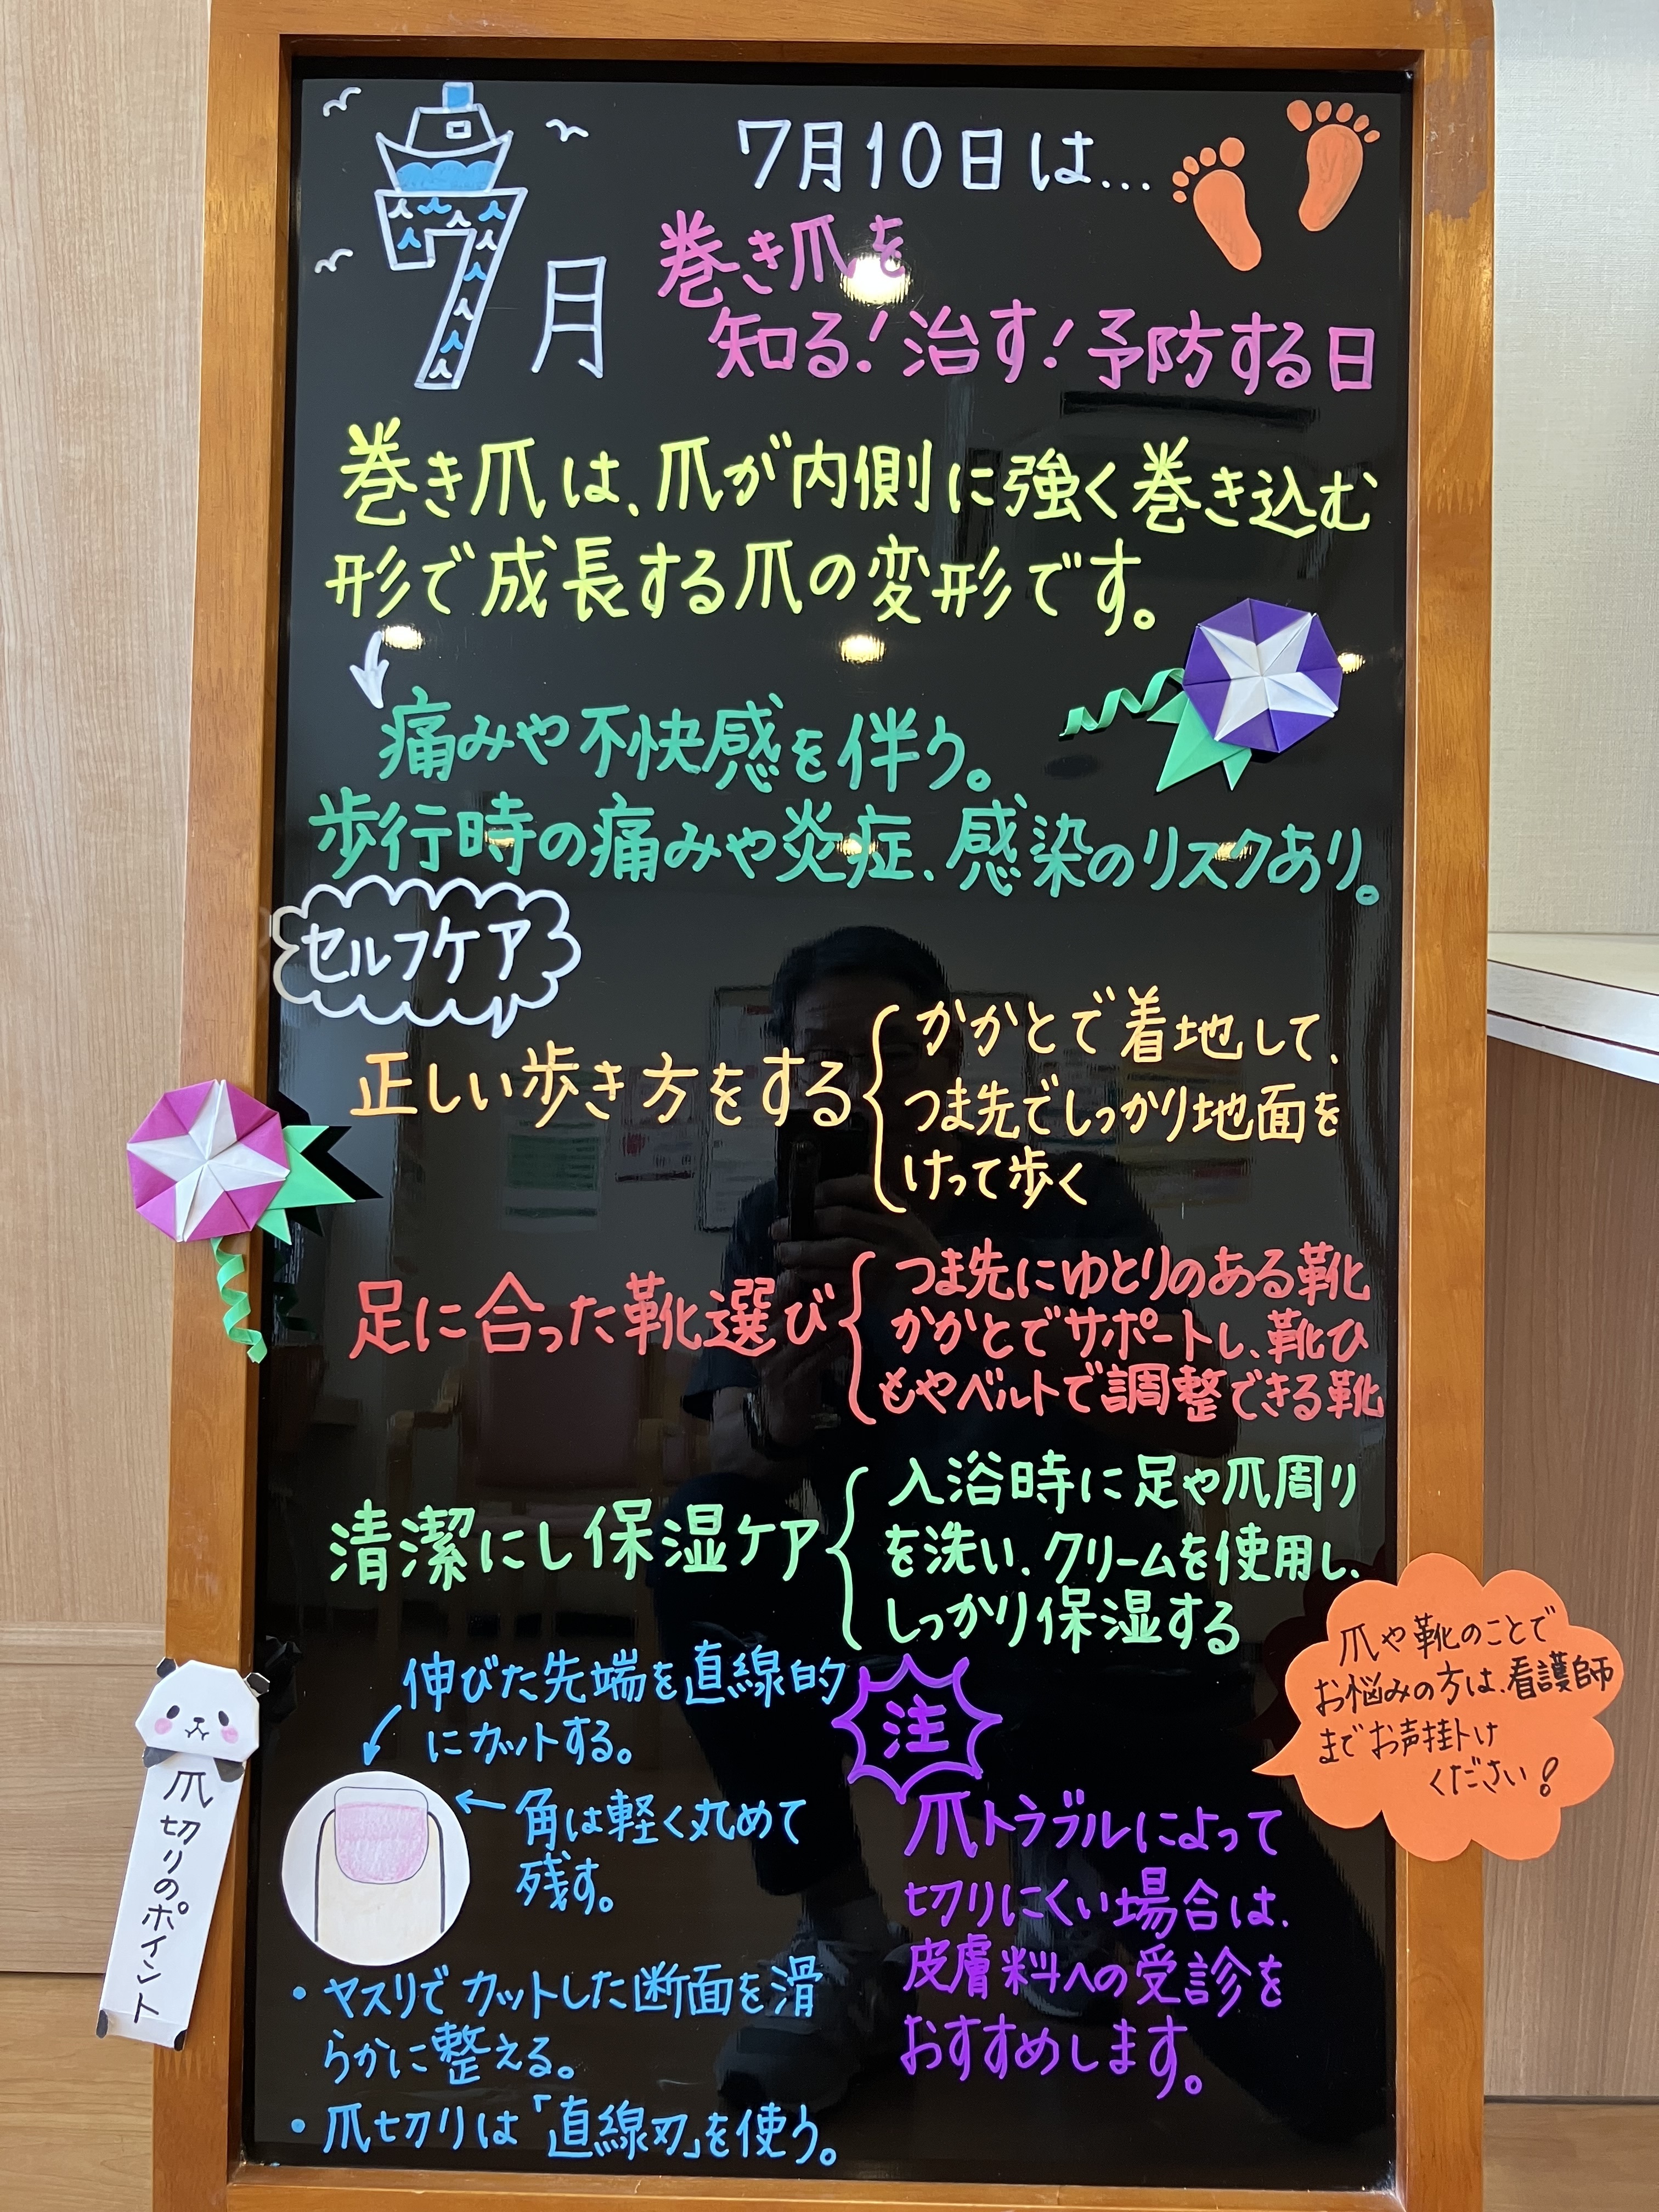 7月
7月10日は...
巻き爪を
知る!治す!予防する日
巻き爪は、爪が内側に強く巻き込む
形で成長する爪の変形です。
痛みや不快感を伴う。
歩行時の痛みや炎症、感染のリスクあり。
セルフケア
正しい歩き方をする
かかとで着地して、
つま先でしっかり地面を
けって歩く
足に合った靴選び
つま先にゆとりのある靴
かかとでサポートし、靴ひ
もやベルトで調整できる靴
清潔にし保湿ケア
入浴時に足や爪周り
を洗い、クリームを使用し、
しっかり保湿する
爪切りのポイント
伸びた先端を直線的
にカットする。
角は軽く丸めて
残す。
・ヤスリでカットした断面を滑
らかに整える。
・爪切りは「直線刃」を使う。
注
爪トラブルによって
切りにくい場合は、
皮膚科への受診を
おすすめします。
爪や靴のことで
お悩みの方は、看護師
までお声掛け
ください!